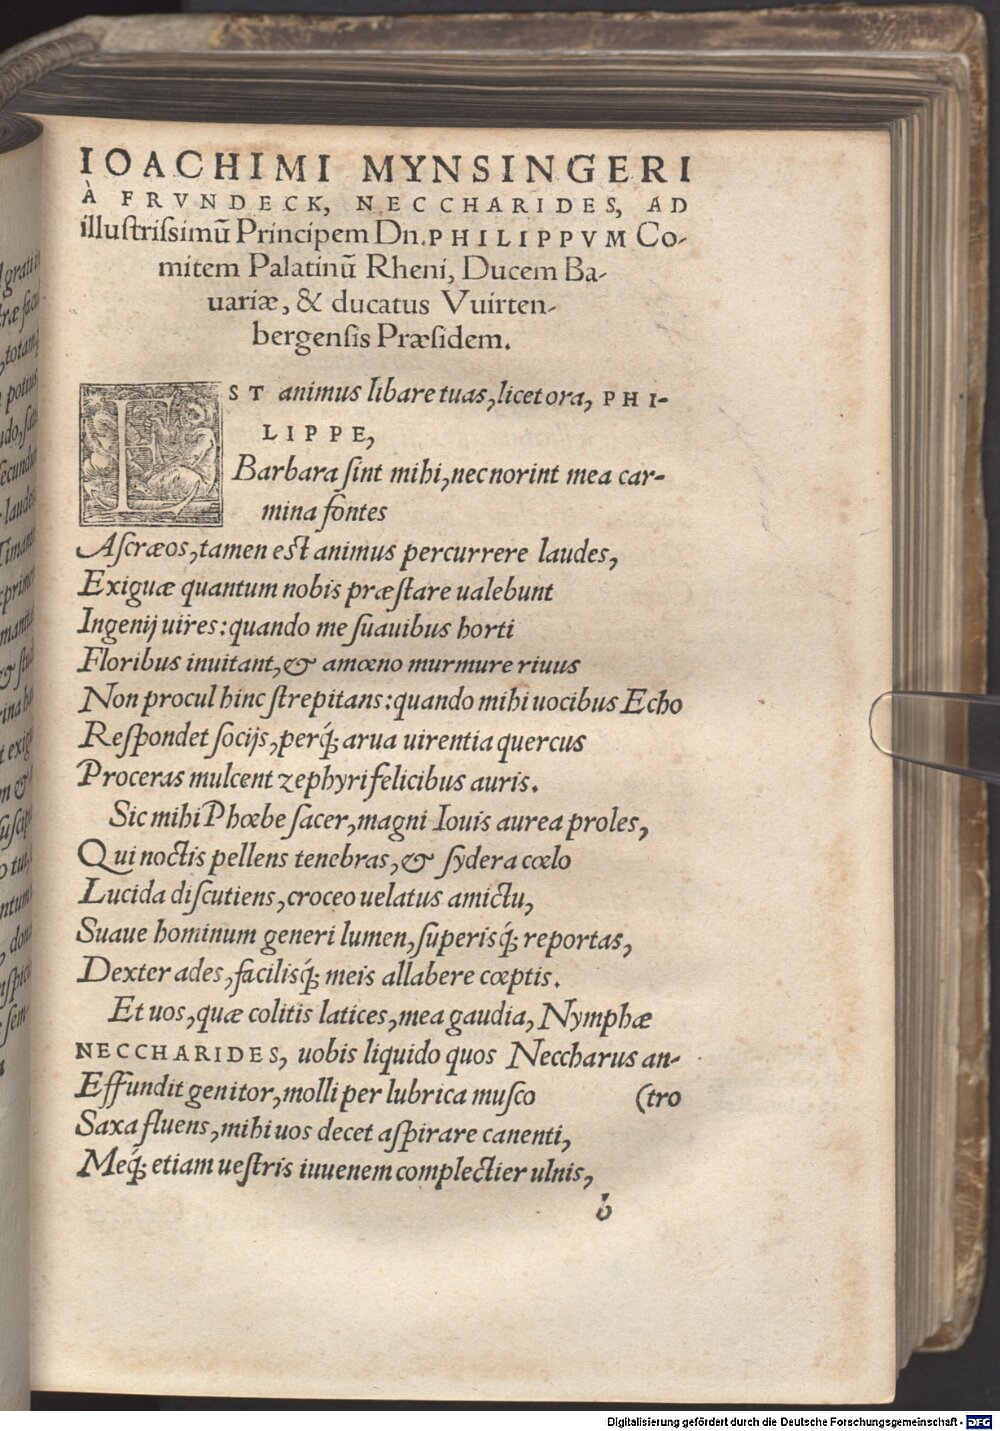 IOACHIMI MYNSINGERI
À FRVNDECK, NECCHARIDES, AD
illuſtriſsimũ Principem Dn. PHILIPPVM Co-
mitem Palatinũ Rheni, Ducem Ba-
uariæ, & ducatus Vuirten-
bergenſis Præſidem.
EST animus libare tuas, licet ora, PHI-
LIPPE,
Barbara ſint mihi, nec norint mea car-
mina fontes
Aſcræos, tamen eſt animus percurrere laudes,
Exiguæ quantum nobis præſtare ualebunt
Ingenij uires: quando me ſuauibus horti
Floribus inuitant, & amœno murmure riuus
Non procul hinc ſtrepitans: quando mihi uocibus Echo
Reſpondet ſocijs, perq́; arua uirentia quercus
Proceras mulcent zephyri felicibus auris.
Sic mihi Phœbe ſacer, magni Iouis aurea proles,
Qui noctis pellens tenebras, & ſydera cœlo
Lucida diſcutiens, croceo uelatus amictu,
Suaue hominum generi lumen, ſuperisq́; reportas,
Dexter ades, facilisq́; meis allabere cœptis.
Et uos, quæ colitis latices, mea gaudia, Nymphæ
NECCHARIDES, uobis liquido quos Neccharus an-
Effundit genitor, molli per lubrica muſco (tro
Saxa fluens, mihi uos decet aſpirare canenti,
Meq́; etiam ueſtris iuuenem complectier ulnis,
b
Digitalisierung gefördert durch die Deutsche Forschungsgemeinschaft - DFG